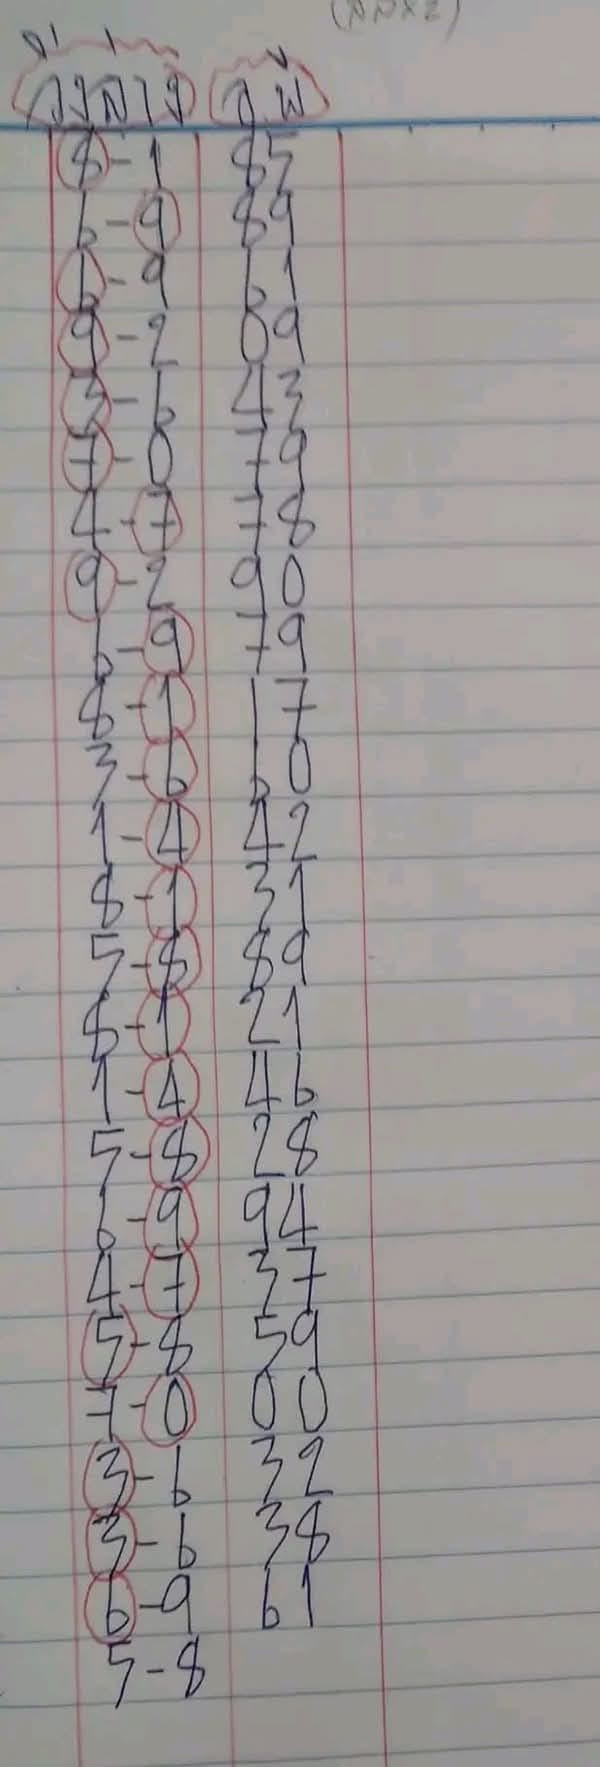 8-1 85
6-9 89
6-9 61
9-2 09
3-6 43
7-0 79
4-7 78
9-2 90
6-9 79
8-1 17
3-6 60
1-4 42
8-1 31
5-8 89
8-1 21
1-4 46
5-8 28
6-9 94
4-7 37
5-8 59
7-0 00
3-6 32
3-6 38
6-9 61
5-8